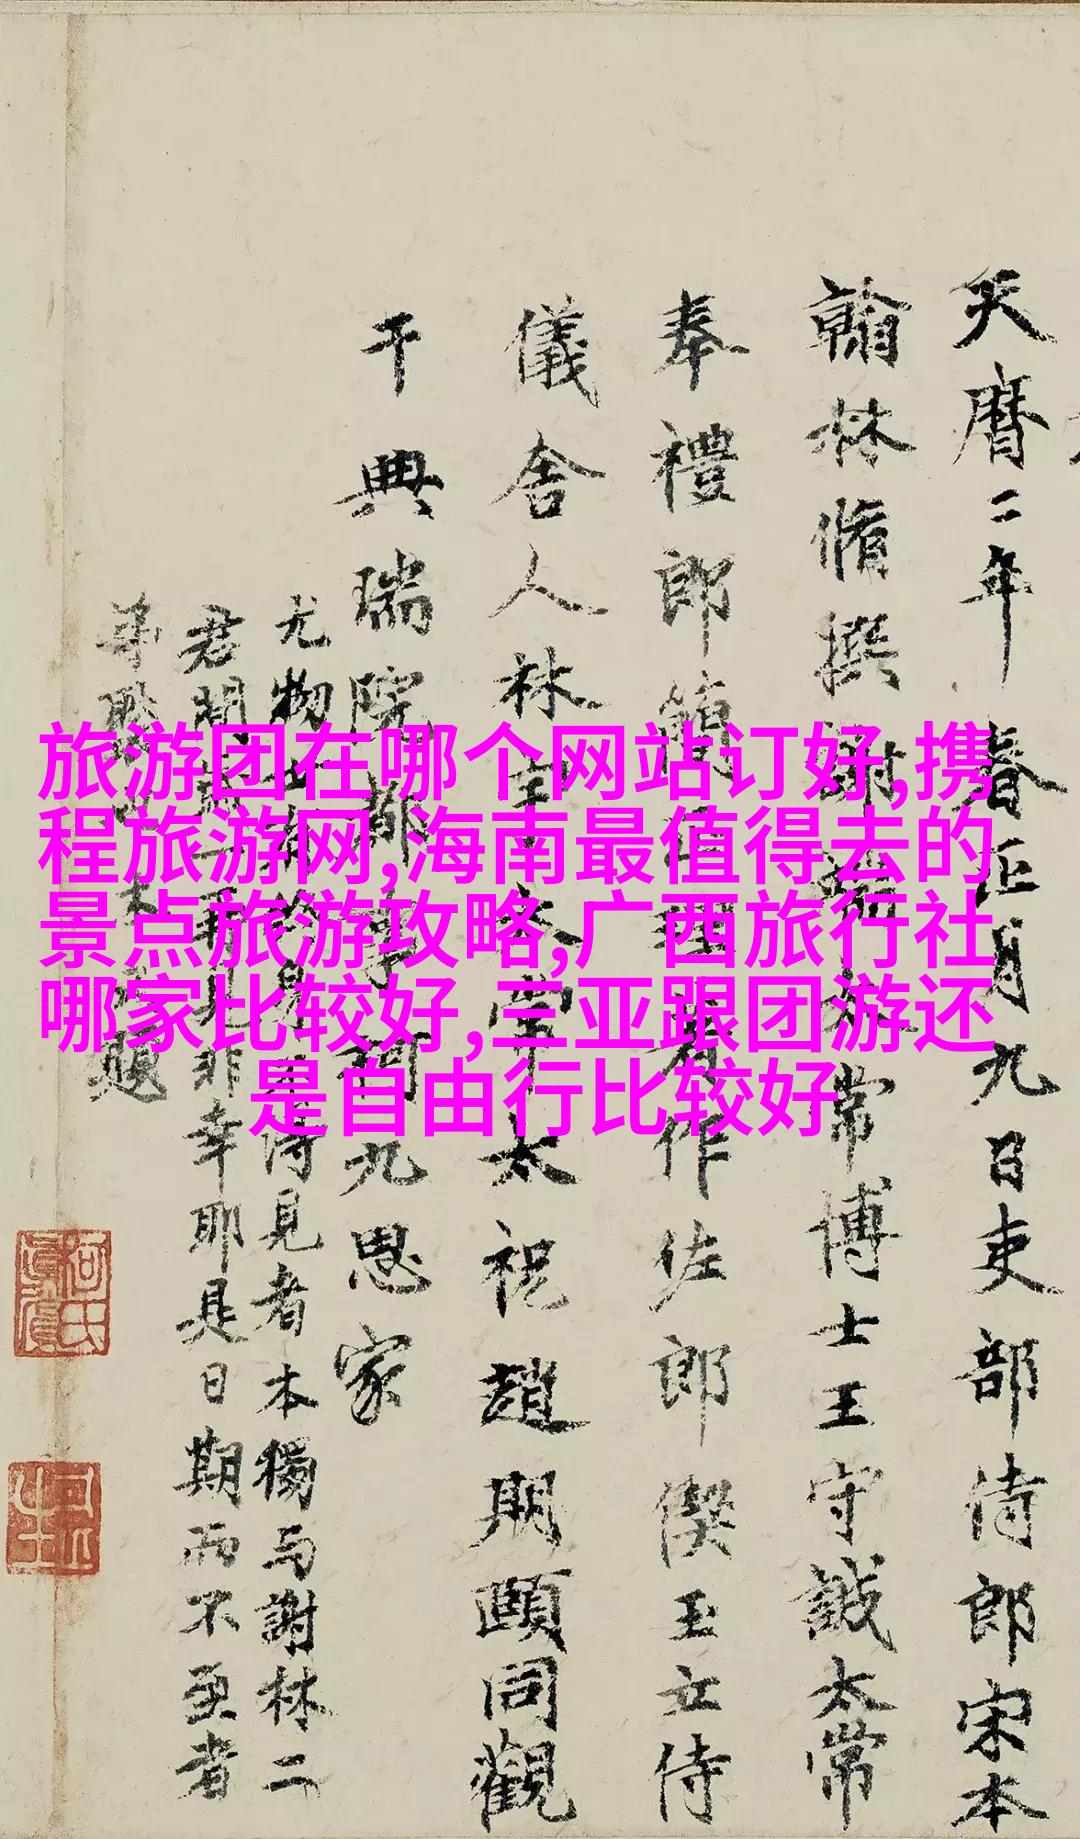 天曆二年春正月九日吏部侍郎宋本
翰林脩撰謝端太常博士王守誠太常
奉禮郎簡正理著作佐郎偰玉立侍
儀舍人林宇大常太祝趙期頤同觀
于典瑞院都事柯九思家
尤物世
見者本獨与謝林二
君間再見非幸耶是日期而不至者
題
旅游团在哪个网站订好,携
程旅游网,海南最值得去的
景点旅游攻略,广西旅行社
哪家比较好,三亚跟团游还
是自由行比较好